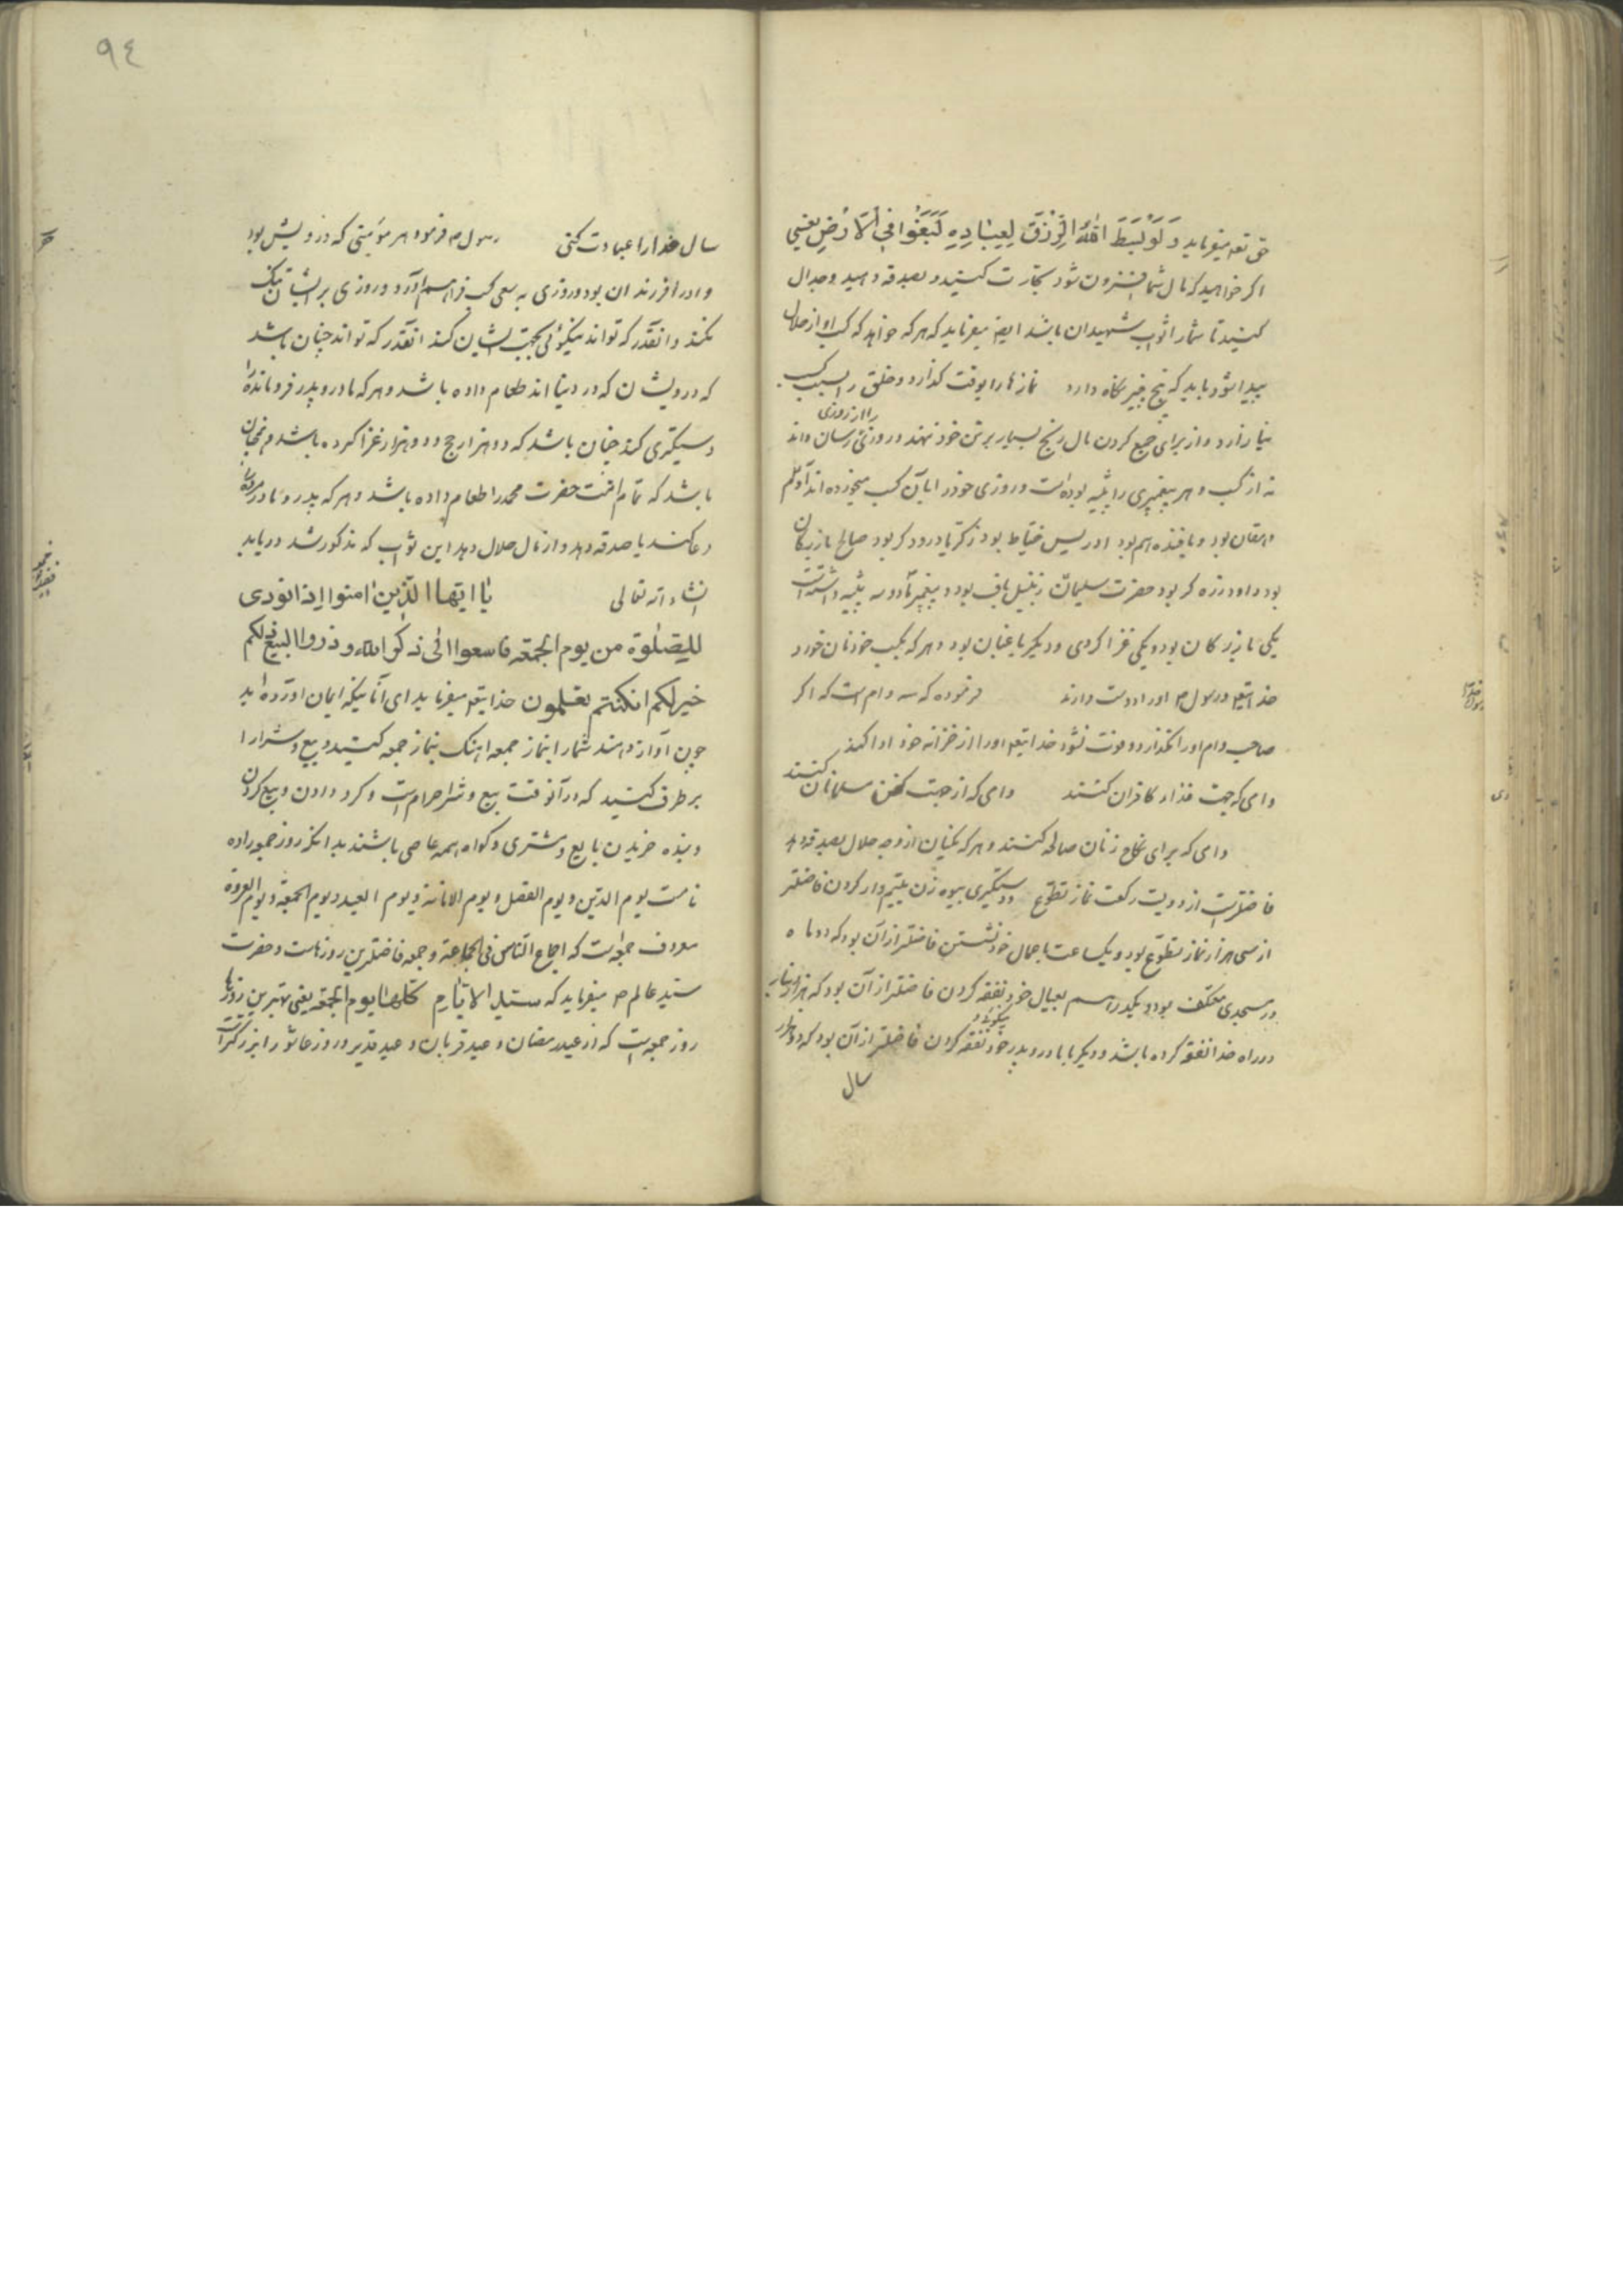 حق تعه میفرماید وَ لَوْ بَسَطَ اللّٰهُ الرِّزْقَ لِعِبَادِهِ لَبَغَوْا فِي الْاَرْضِ یعنی
اکر خواهید که مال شما افزون شود تجارت کنید و بصدقه دهید و جدال
کنید تا شمارا ثواب شهیدان باشد ایضا میفرماید که هر که خواهد که کسب او از حلال
پیدا شود باید که پنج چیز نکاه دارد نمازها را بوقت کذارد و خلق را بسبب کسب
نیازارد و از برای جمع کردن مال رنج بسیار بر تن خود ننهد و روزی رسان داند
را از روزی
نه از کسب و هر پیغمبری را پیشه بوده است و روزی خود را با آن کسب میخورده اند آدم
دهقان بود و بافنده هم بود ادریس خیاط بود زکریا درودکر بود صالح بازرکان
بود داود زره کر بود حضرت سلیمان زنبیل باف بود و پیغمبر ما دو سه پیشه داشته است
یکی بازرکان بود و یکی غزا کردی و دیکر باغبان بود و هر که بکسب خود نان خورد
خدایتعه و رسول ص او را دوست دارند فرموده که سه وام است که اکر
صاحب وام او را نکذارد و فوت شود خدایتعه او را از خزانه خود ادا کند
وامی که جهت فداء کافران کنند وامی که از جهت کفن مسلمانان کنند
وامی که برای نکاح زنان صالحه کنند و هر که یکنان از وجه حلال بصدقه دهد
فاضلتر است از دویست رکعت نماز تطوع و دستکیری بیوه زن یتیم دار کردن فاضلتر
از سی هزار نماز تطوع بود و یکساعت با عیال خود نشستن فاضلتر از آن بود که دو ماه
در مسجدی معتکف بود و یکدرهم بعیال خود نفقه کردن فاضلتر از آن بود که هزار دینار
در راه خدا نفقه کرده باشد و دیکر با مادر و پدر خود نفقه کردن فاضلتر از آن بود که دو هزار
نیکوئی و
سال
٩٤
سال خدا را عبادت کنی رسول ص فرمود هر مؤمنی که درویش بود
و او را فرزندان بود و روزی به سعی کسب فراهم آورد و روزی بر ایشان تنک
نکند و آنقدر که تواند نیکوئی بجهت ایشان کند آنقدر که تواند چنان باشد
که درویشان که در دنیا اند طعام داده باشد و هر که مادر و پدر فرومانده را
دستکیری کند چنان باشد که دو هزار حج و دو هزار غزا کرده باشد و همچنان
باشد که تمام امت حضرت محمد را طعام داده باشد و هر که پدر و مادر مرده را
دعا کند یا صدقه دهد و از مال حلال دهد این ثواب که مذکور شد دریابد
انشاء الله تعالی یا ایها الذین امنوا اذا نودی
للصلوة من یوم الجمعة فاسعوا الی ذکر الله و ذروا البیع ذلکم
خیر لکم ان کنتم تعلمون خدایتعه میفرماید ای آنانیکه ایمان آورده اید
چون آواز دهند شما را بنماز جمعه آهنک نماز جمعه کنید و بیع و شرا را
بر طرف کنید که در آنوقت بیع و شرا حرام است و کرو دادن و بیع کردن
و بنده خریدن بایع و مشتری و کواه همه عاصی باشند بدانکه روز جمعه را ده
نامست یوم الدین و یوم الفضل و یوم الامانة و یوم العید و یوم الجمعة و یوم العروة
معروف جمعه است که اجماع الناس فی الجماعة و جمعه فاضلترین روزهاست و حضرت
سید عالم ص میفرماید که سید الایام کلها یوم الجمعة یعنی بهترین روزها
روز جمعه است که از عید رمضان و عید قربان و عید غدیر و روز عاشورا بزرکتر است